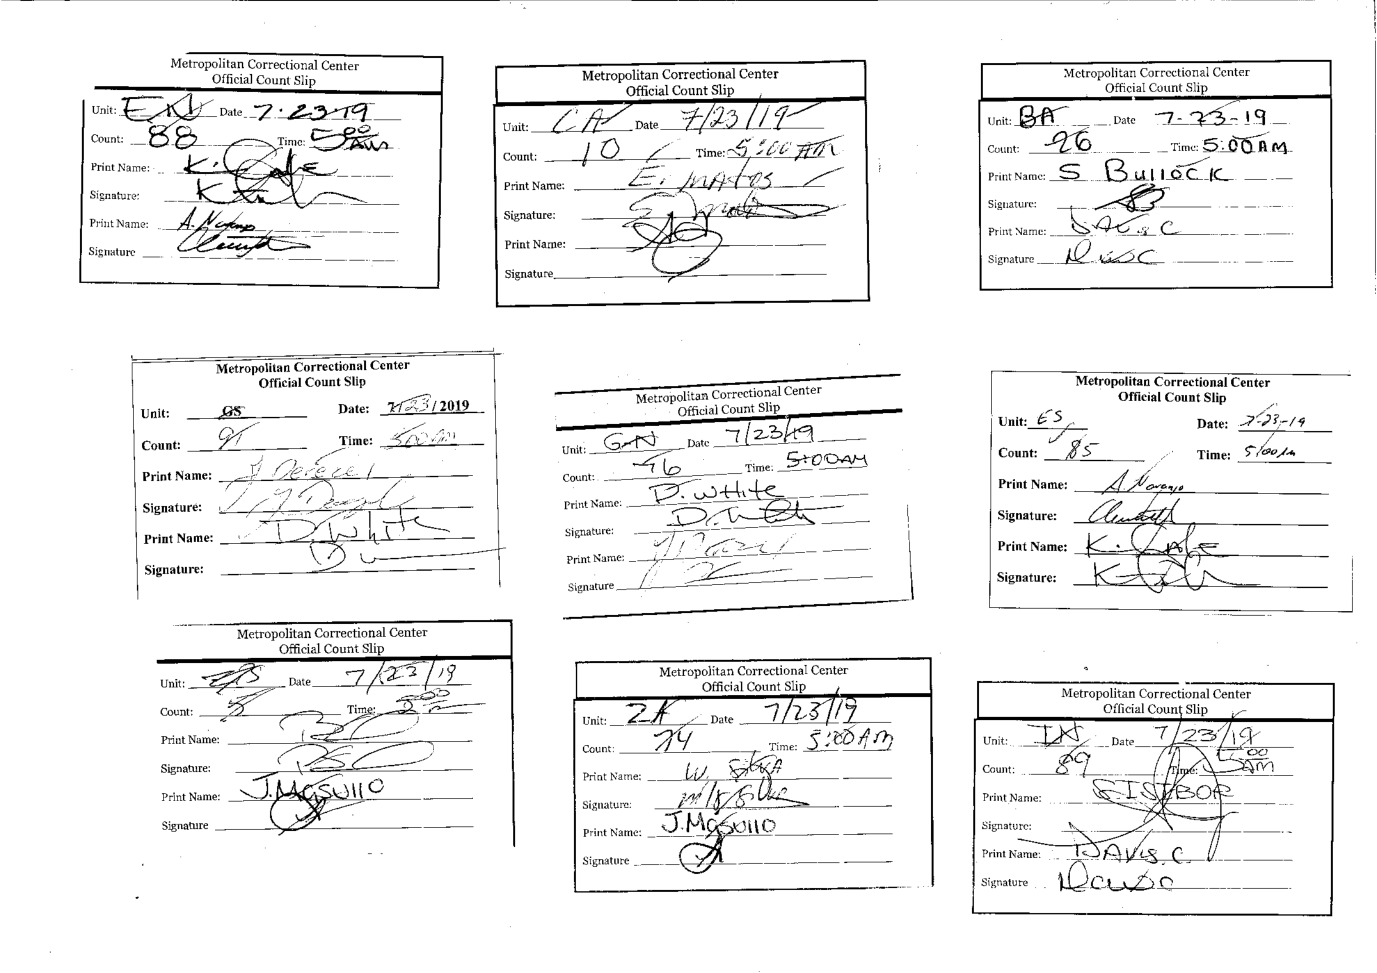 Metropolitan Correctional Center
Official Count Slip
Unit: EN Date 7-23-19
Count: 88 Time: 5:00 AM
Print Name: K.
Signature: K
Print Name: A. Naranjo
Signature
Metropolitan Correctional Center
Official Count Slip
Unit: CA Date 7/23/19
Count: 10 Time: 5:00 AM
Print Name: E. Matos
Signature:
Print Name:
Signature
Metropolitan Correctional Center
Official Count Slip
Unit: BA Date 7-23-19
Count: 26 Time: 5:00 AM
Print Name: S Bullock
Signature:
Print Name: Davis C
Signature Davis C
Metropolitan Correctional Center
Official Count Slip
Unit: GS Date: 7/23/2019
Count: 91 Time: 5:00am
Print Name: J
Signature:
Print Name: D. White
Signature: D
Metropolitan Correctional Center
Official Count Slip
Unit: GN Date 7/23/19
Count: 76 Time: 5:00AM
Print Name: D. White
Signature: D. White
Print Name:
Signature
Metropolitan Correctional Center
Official Count Slip
Unit: ES Date: 7-23-19
Count: 85 Time: 5:00 AM
Print Name: A. Naranjo
Signature:
Print Name: K.
Signature: K
Metropolitan Correctional Center
Official Count Slip
Unit: Date 7/23/19
Count: Time: 5:00
Print Name:
Signature:
Print Name: J.Mosullo
Signature
Metropolitan Correctional Center
Official Count Slip
Unit: ZA Date 7/23/19
Count: 74 Time: 5:00 AM
Print Name: W. Silva
Signature:
Print Name: J.Mosullo
Signature
Metropolitan Correctional Center
Official Count Slip
Unit: IN Date 7/23/19
Count: 89 Time: 5:00 AM
Print Name:
Signature:
Print Name: Davis. C
Signature Davis C